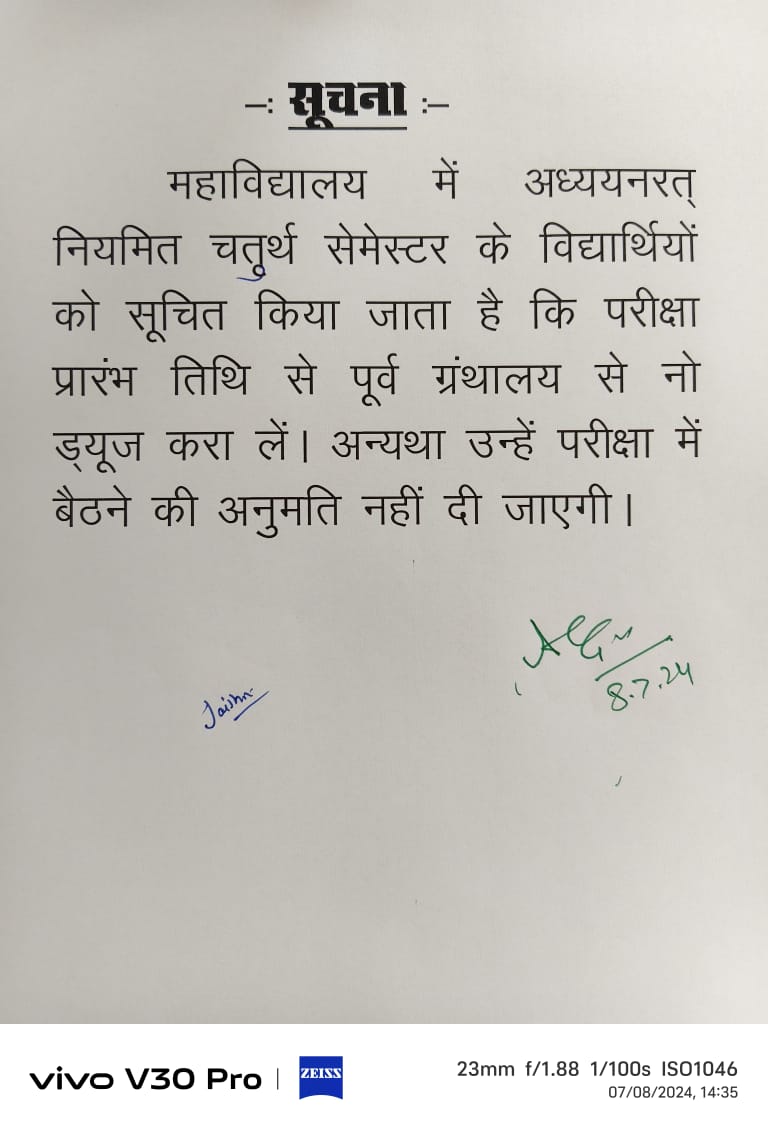 –: सूचना :–
महाविद्यालय में अध्ययनरत्
नियमित चतुर्थ सेमेस्टर के विद्यार्थियों
को सूचित किया जाता है कि परीक्षा
प्रारंभ तिथि से पूर्व ग्रंथालय से नो
ड्यूज करा लें। अन्यथा उन्हें परीक्षा में
बैठने की अनुमति नहीं दी जाएगी।
8.7.24
vivo V30 Pro | ZEISS
23mm f/1.88 1/100s ISO1046
07/08/2024, 14:35